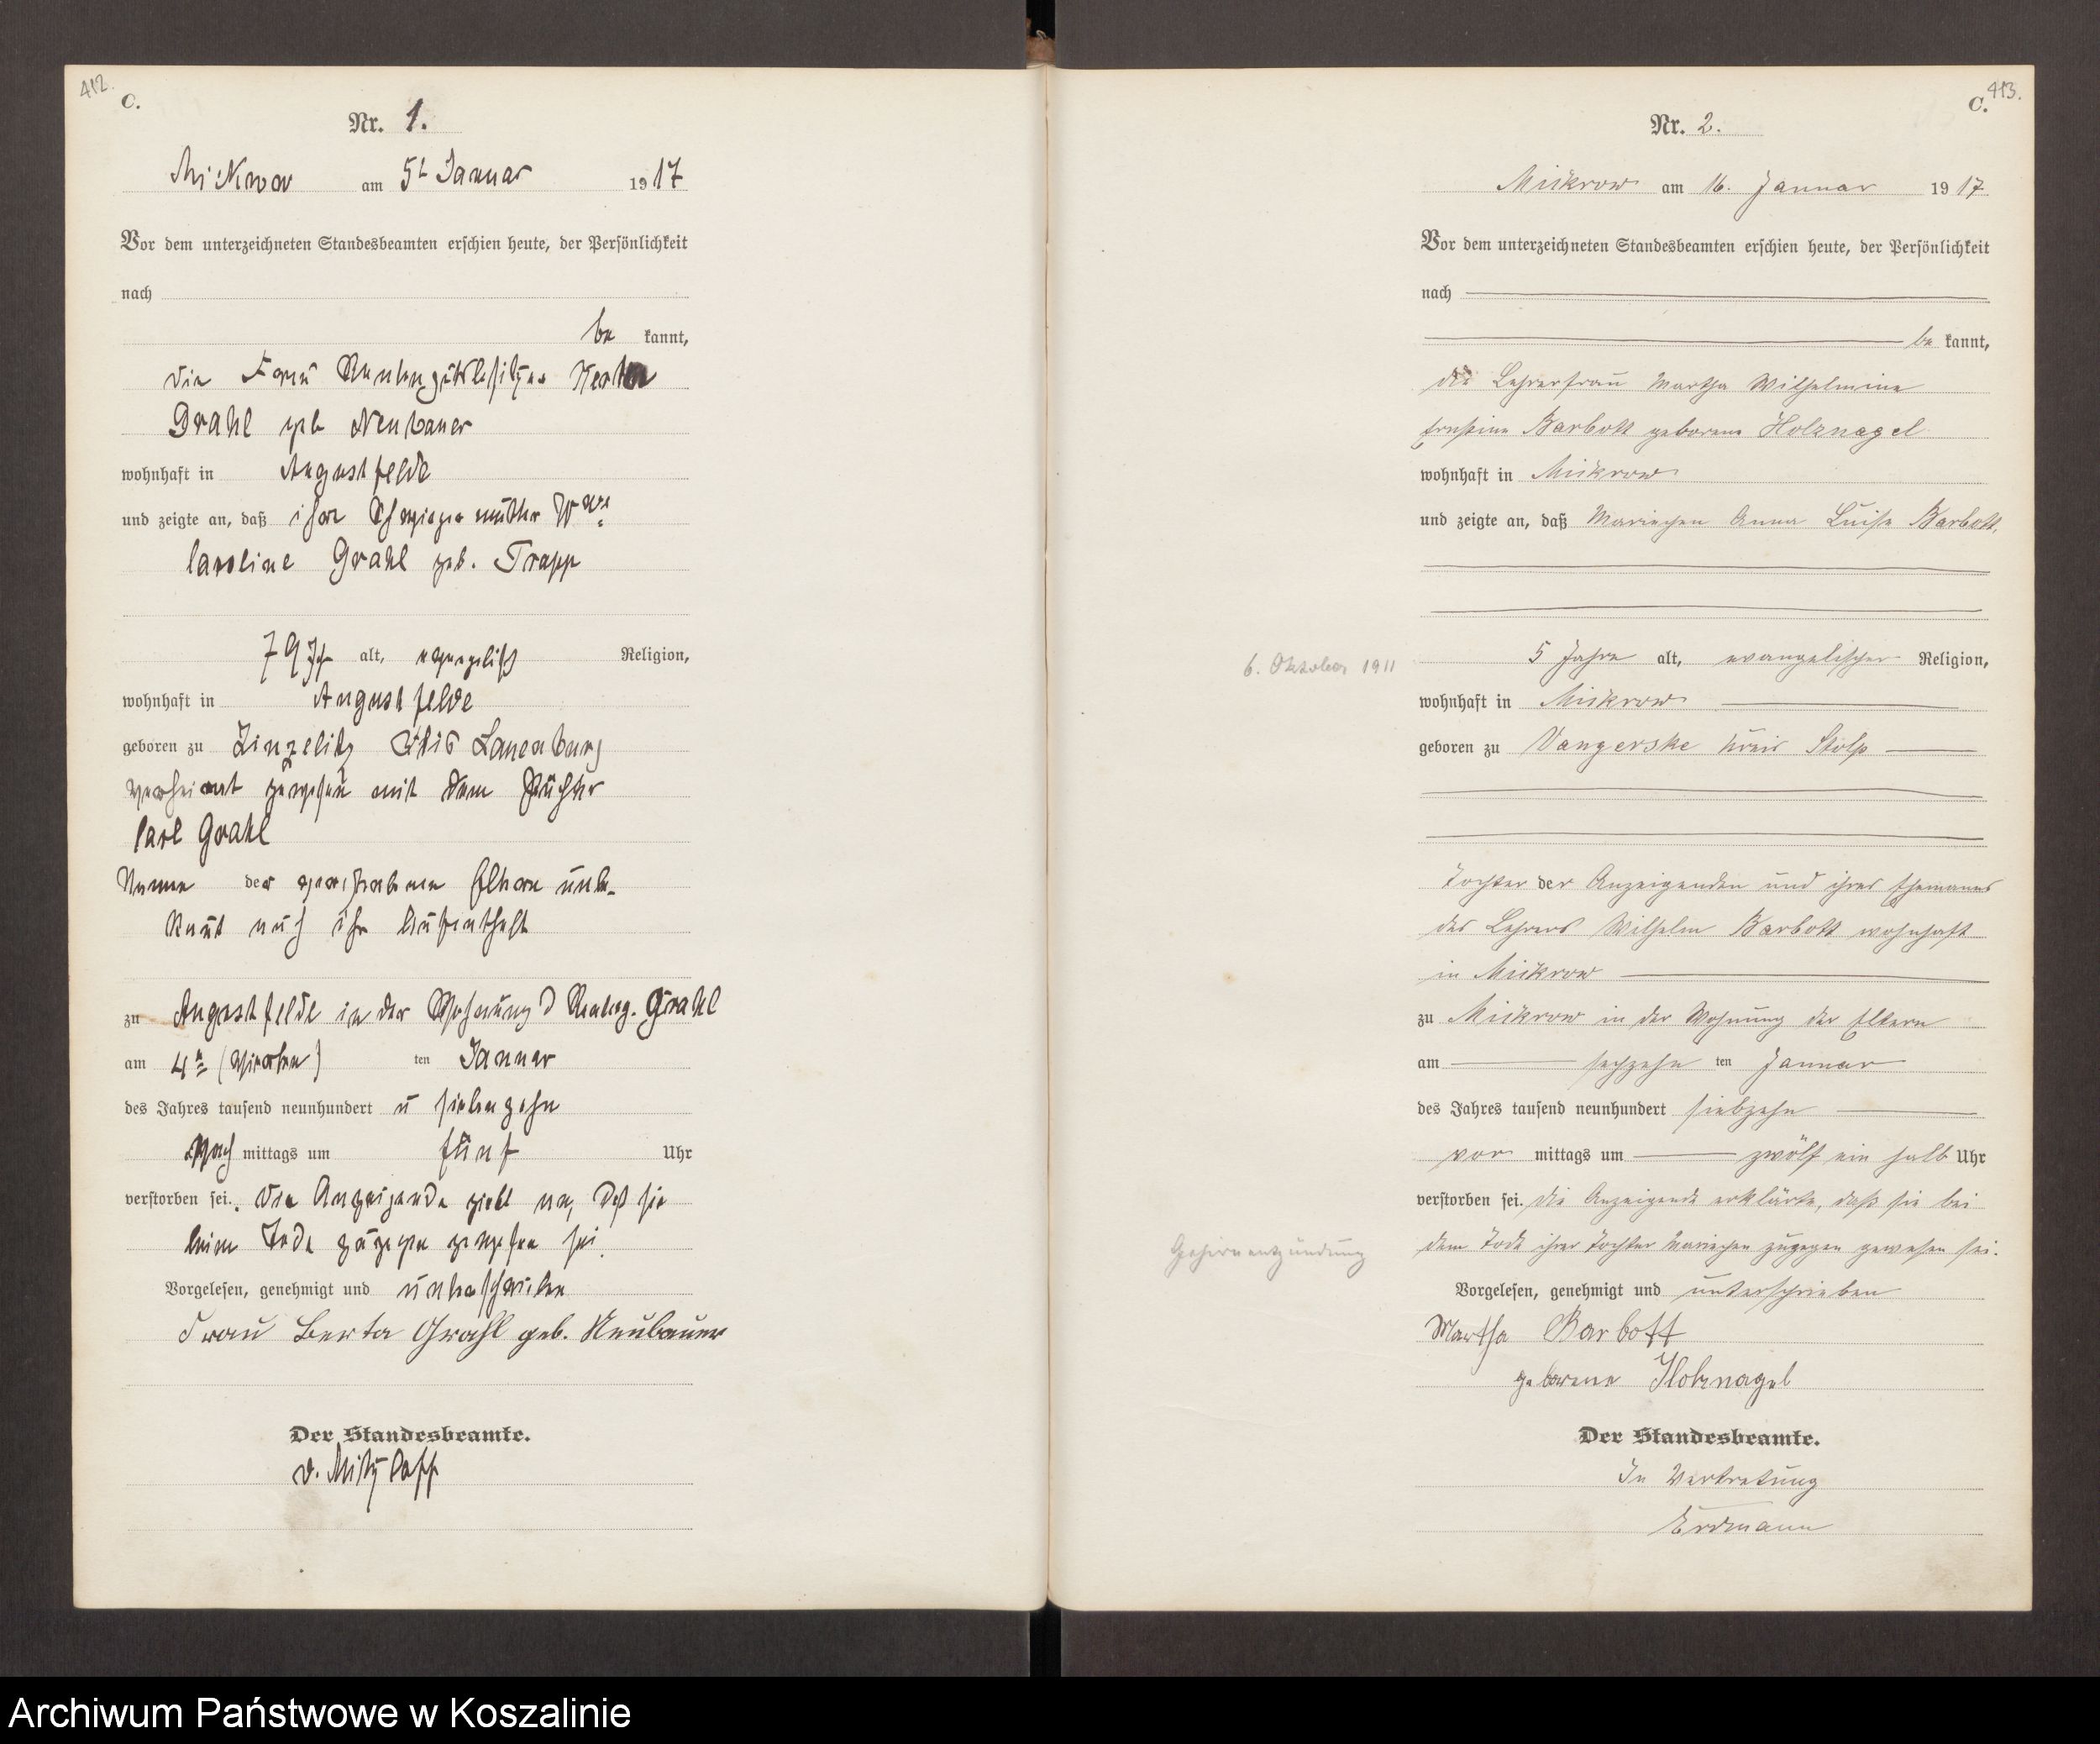 412.
C.
Nr. 1.
Mickrow am 5t Januar 1917
Vor dem unterzeichneten Standesbeamten erschien heute, der Persönlichkeit
nach
be kannt,
die Frau Rentengutsbesitzer
Grahl geb Neubauer
wohnhaft in Augustfelde
und zeigte an, daß ihre Schwiegermutter Wwe
Caroline Grahl geb. Trapp
79 J alt, evangelisch Religion,
wohnhaft in Augustfelde
geboren zu Zinzelitz Kreis Lauenburg
verheirat gewesen mit dem Pächter
Carl Grahl
Namen der Eltern unbe-
kannt auch ihr Aufenthalt
zu Augustfelde in der Wohnung d Renteng. Grahl
am 4n (vierten) ten Januar
des Jahres tausend neunhundert u siebenzehn
Nach mittags um fünf Uhr
verstorben sei. Die Anzeigende giebt an, daß sie
beim Tode zugegen gewesen sei.
Vorgelesen, genehmigt und unterschrieben
Frau Berta Grahl geb. Neubauer
Der Standesbeamte.
v. Mitzlaff
413.
C.
Nr. 2.
Mickrow am 16. Januar 1917
Vor dem unterzeichneten Standesbeamten erschien heute, der Persönlichkeit
nach
be kannt,
die Lehrerfrau Martha Wilhelmine
Ernstine Barbott geborene Holznagel
wohnhaft in Mickrow
und zeigte an, daß Mariechen Anna Luise Barbott,
6. Oktober 1911
5 Jahre alt, evangelischer Religion,
wohnhaft in Mickrow
geboren zu Vangerske Kreis Stolp
Tochter der Anzeigenden und ihres Ehemannes
des Lehrers Wilhelm Barbott wohnhaft
in Mickrow
zu Mickrow in der Wohnung der Eltern
am sechzehn ten Januar
des Jahres tausend neunhundert siebzehn
vor mittags um zwölf ein halb Uhr
verstorben sei. Die Anzeigende erklärte, daß sie bei
dem Tode ihrer Tochter Mariechen zugegen gewesen sei.
Gehirnentzündung
Vorgelesen, genehmigt und unterschrieben
Martha Barbott
geborene Holznagel
Der Standesbeamte.
In Vertretung
Erdmann
Archiwum Państwowe w Koszalinie